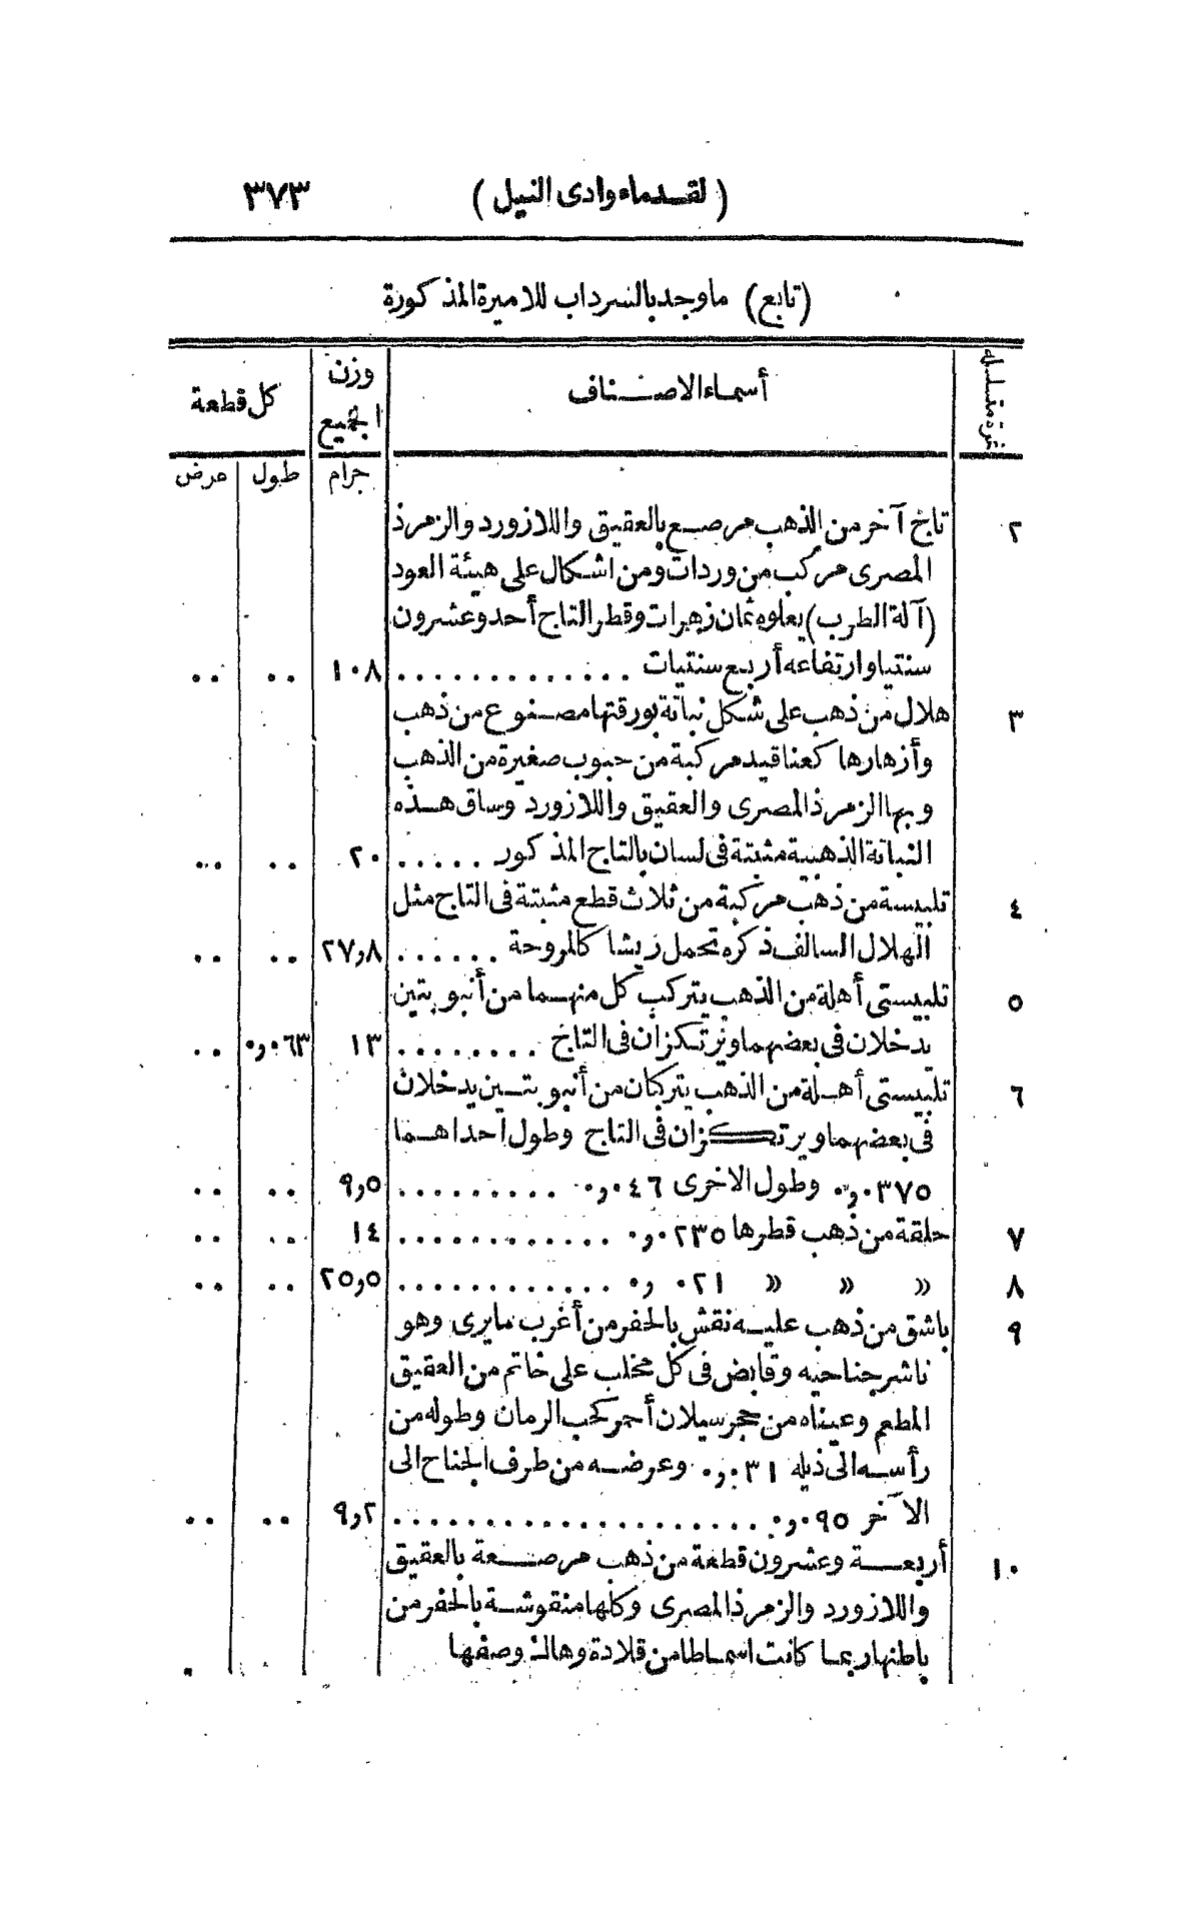 (لقدماء وادى النيل) ٣٧٣
(تابع) ما وجد بالسرداب للاميرة المذكورة
نمرة متسلسلة
أسماء الاصناف
وزن
الجميع
كل قطعة
جرام طول عرض
٢ تاج آخر من الذهب مرصع بالعقيق واللازورد والزمرذ
المصرى مركب من وردات ومن اشكال على هيئة العود
(آلة الطرب) يعلوه ثمان زهيرات وقطر التاج أحد وعشرون
سنتيا وارتفاعه أربع سنتيات . . . . . . . . . . . . . ١٠٨ .. ..
٣ هلال من ذهب على شكل نباتة بورقتها مصنوع من ذهب
وأزهارها كعناقيد مركبة من حبوب صغيرة من الذهب
وبها الزمرذ المصرى والعقيق واللازورد وساق هذه
النباتة الذهبية مثبتة فى لسان بالتاج المذكور . . . . . ٢٠ .. ..
٤ تلبيسة من ذهب مركبة من ثلاث قطع مثبتة فى التاج مثل
الهلال السالف ذكره تحمل ريشا كالمروحة . . . . . . ٢٧٫٨ .. ..
٥ تلبيستى أهلة من الذهب يتركب كل منهما من أنبوبتين
يدخلان فى بعضهما ويرتكزان فى التاج . . . . . . . . . ١٣ ٠٫٠٦٣ ..
٦ تلبيستى أهلة من الذهب يتركبان من أنبوبتين يدخلان
فى بعضهما ويرتكزان فى التاج وطول احداهما
٠٫٠٣٧٥ وطول الاخرى ٠٫٠٤٦ . . . . . . . . . . ٩٫٥ .. ..
٧ حلقة من ذهب قطرها ٠٫٠٢٣٥ . . . . . . . . . . . . . ١٤ .. ..
٨ » » » ٠٫٠٢١ . . . . . . . . . . . . . ٢٥٫٥ .. ..
٩ باشق من ذهب عليه نقش بالحفر من أغرب ما يرى وهو
ناشر جناحيه وقابض فى كل مخلب على خاتم من العقيق
المطعم وعيناه من حجر سيلان أحمر كحب الرمان وطوله من
رأسه الى ذيله ٠٫٠٣١ وعرضه من طرف الجناح الى
الآخر ٠٫٠٩٥ . . . . . . . . . . . . . . . . . . . . . ٩٫٢ .. ..
١٠ أربعة وعشرون قطعة من ذهب مرصعة بالعقيق
واللازورد والزمرذ المصرى وكلها منقوشة بالحفر من
باطنها ربما كانت اسماطا من قلادة وهاك وصفها